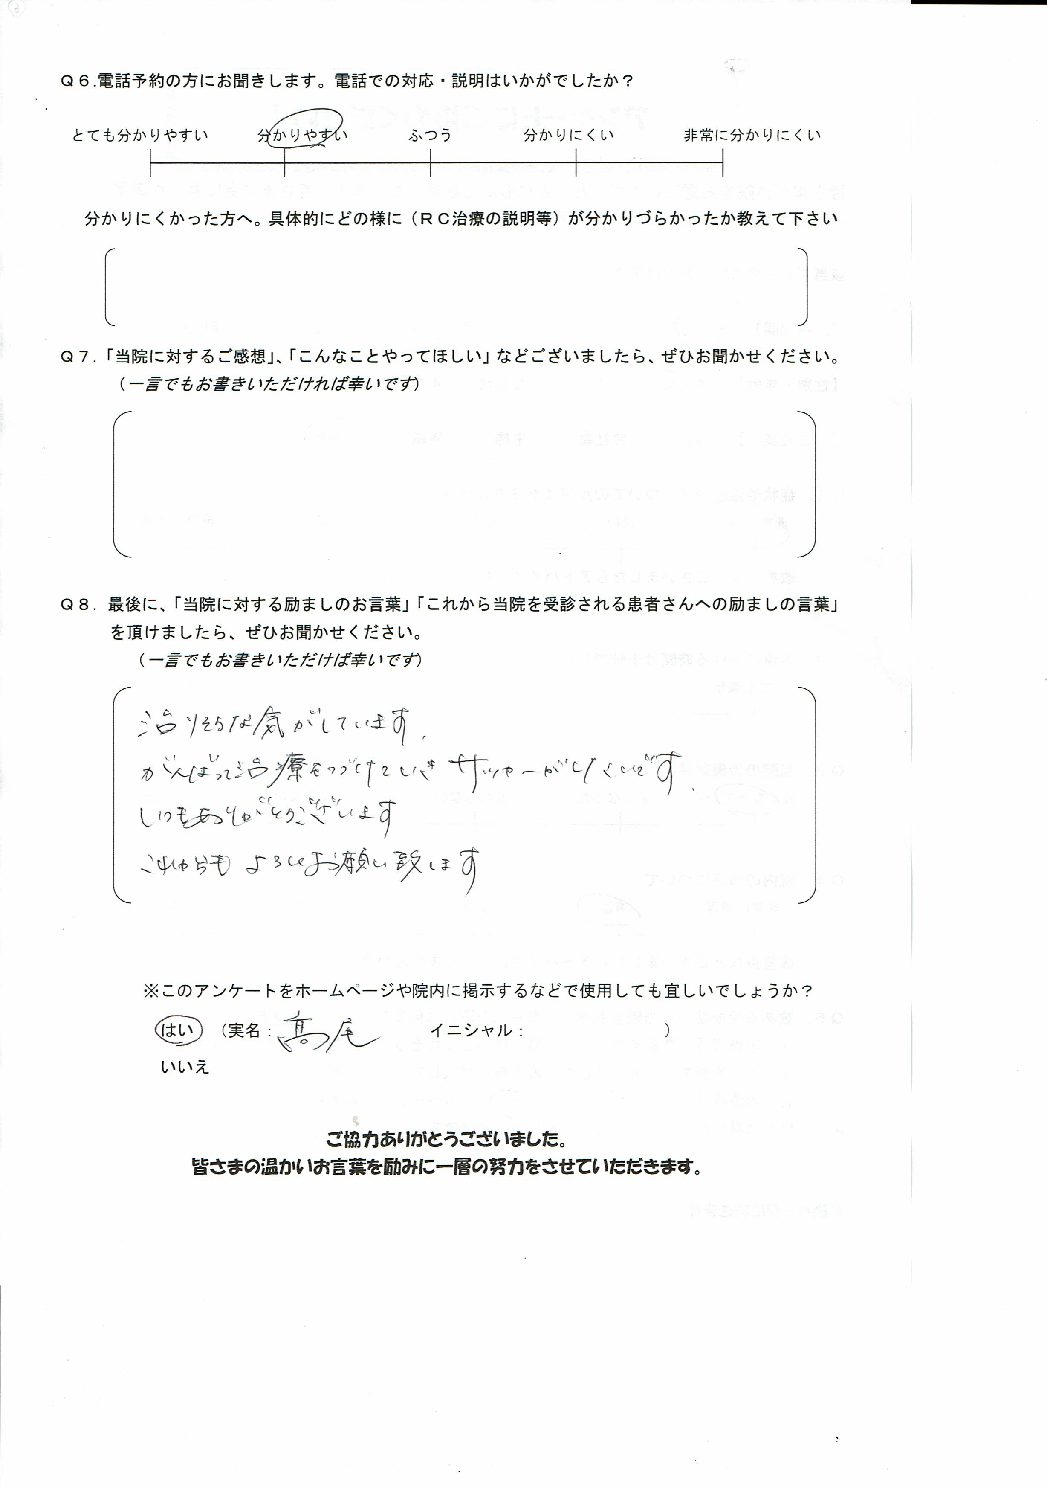 Ｑ６.電話予約の方にお聞きします。電話での対応・説明はいかがでしたか？
とても分かりやすい　分かりやすい　ふつう　分かりにくい　非常に分かりにくい
分かりにくかった方へ。具体的にどの様に（ＲＣ治療の説明等）が分かりづらかったか教えて下さい
Ｑ７.「当院に対するご感想」、「こんなことやってほしい」などございましたら、ぜひお聞かせください。
（一言でもお書きいただければ幸いです）
Ｑ８. 最後に、「当院に対する励ましのお言葉」「これから当院を受診される患者さんへの励ましの言葉」
を頂けましたら、ぜひお聞かせください。
（一言でもお書きいただけば幸いです）
治りそうな気がしています.
がんばって治療をつづけていきサッカーがしたいです.
いつもありがとうございます
これからもよろしくお願い致します
※このアンケートをホームページや院内に掲示するなどで使用しても宜しいでしょうか？
はい　（実名：髙尾　イニシャル：　）
いいえ
ご協力ありがとうございました。
皆さまの温かいお言葉を励みに一層の努力をさせていただきます。